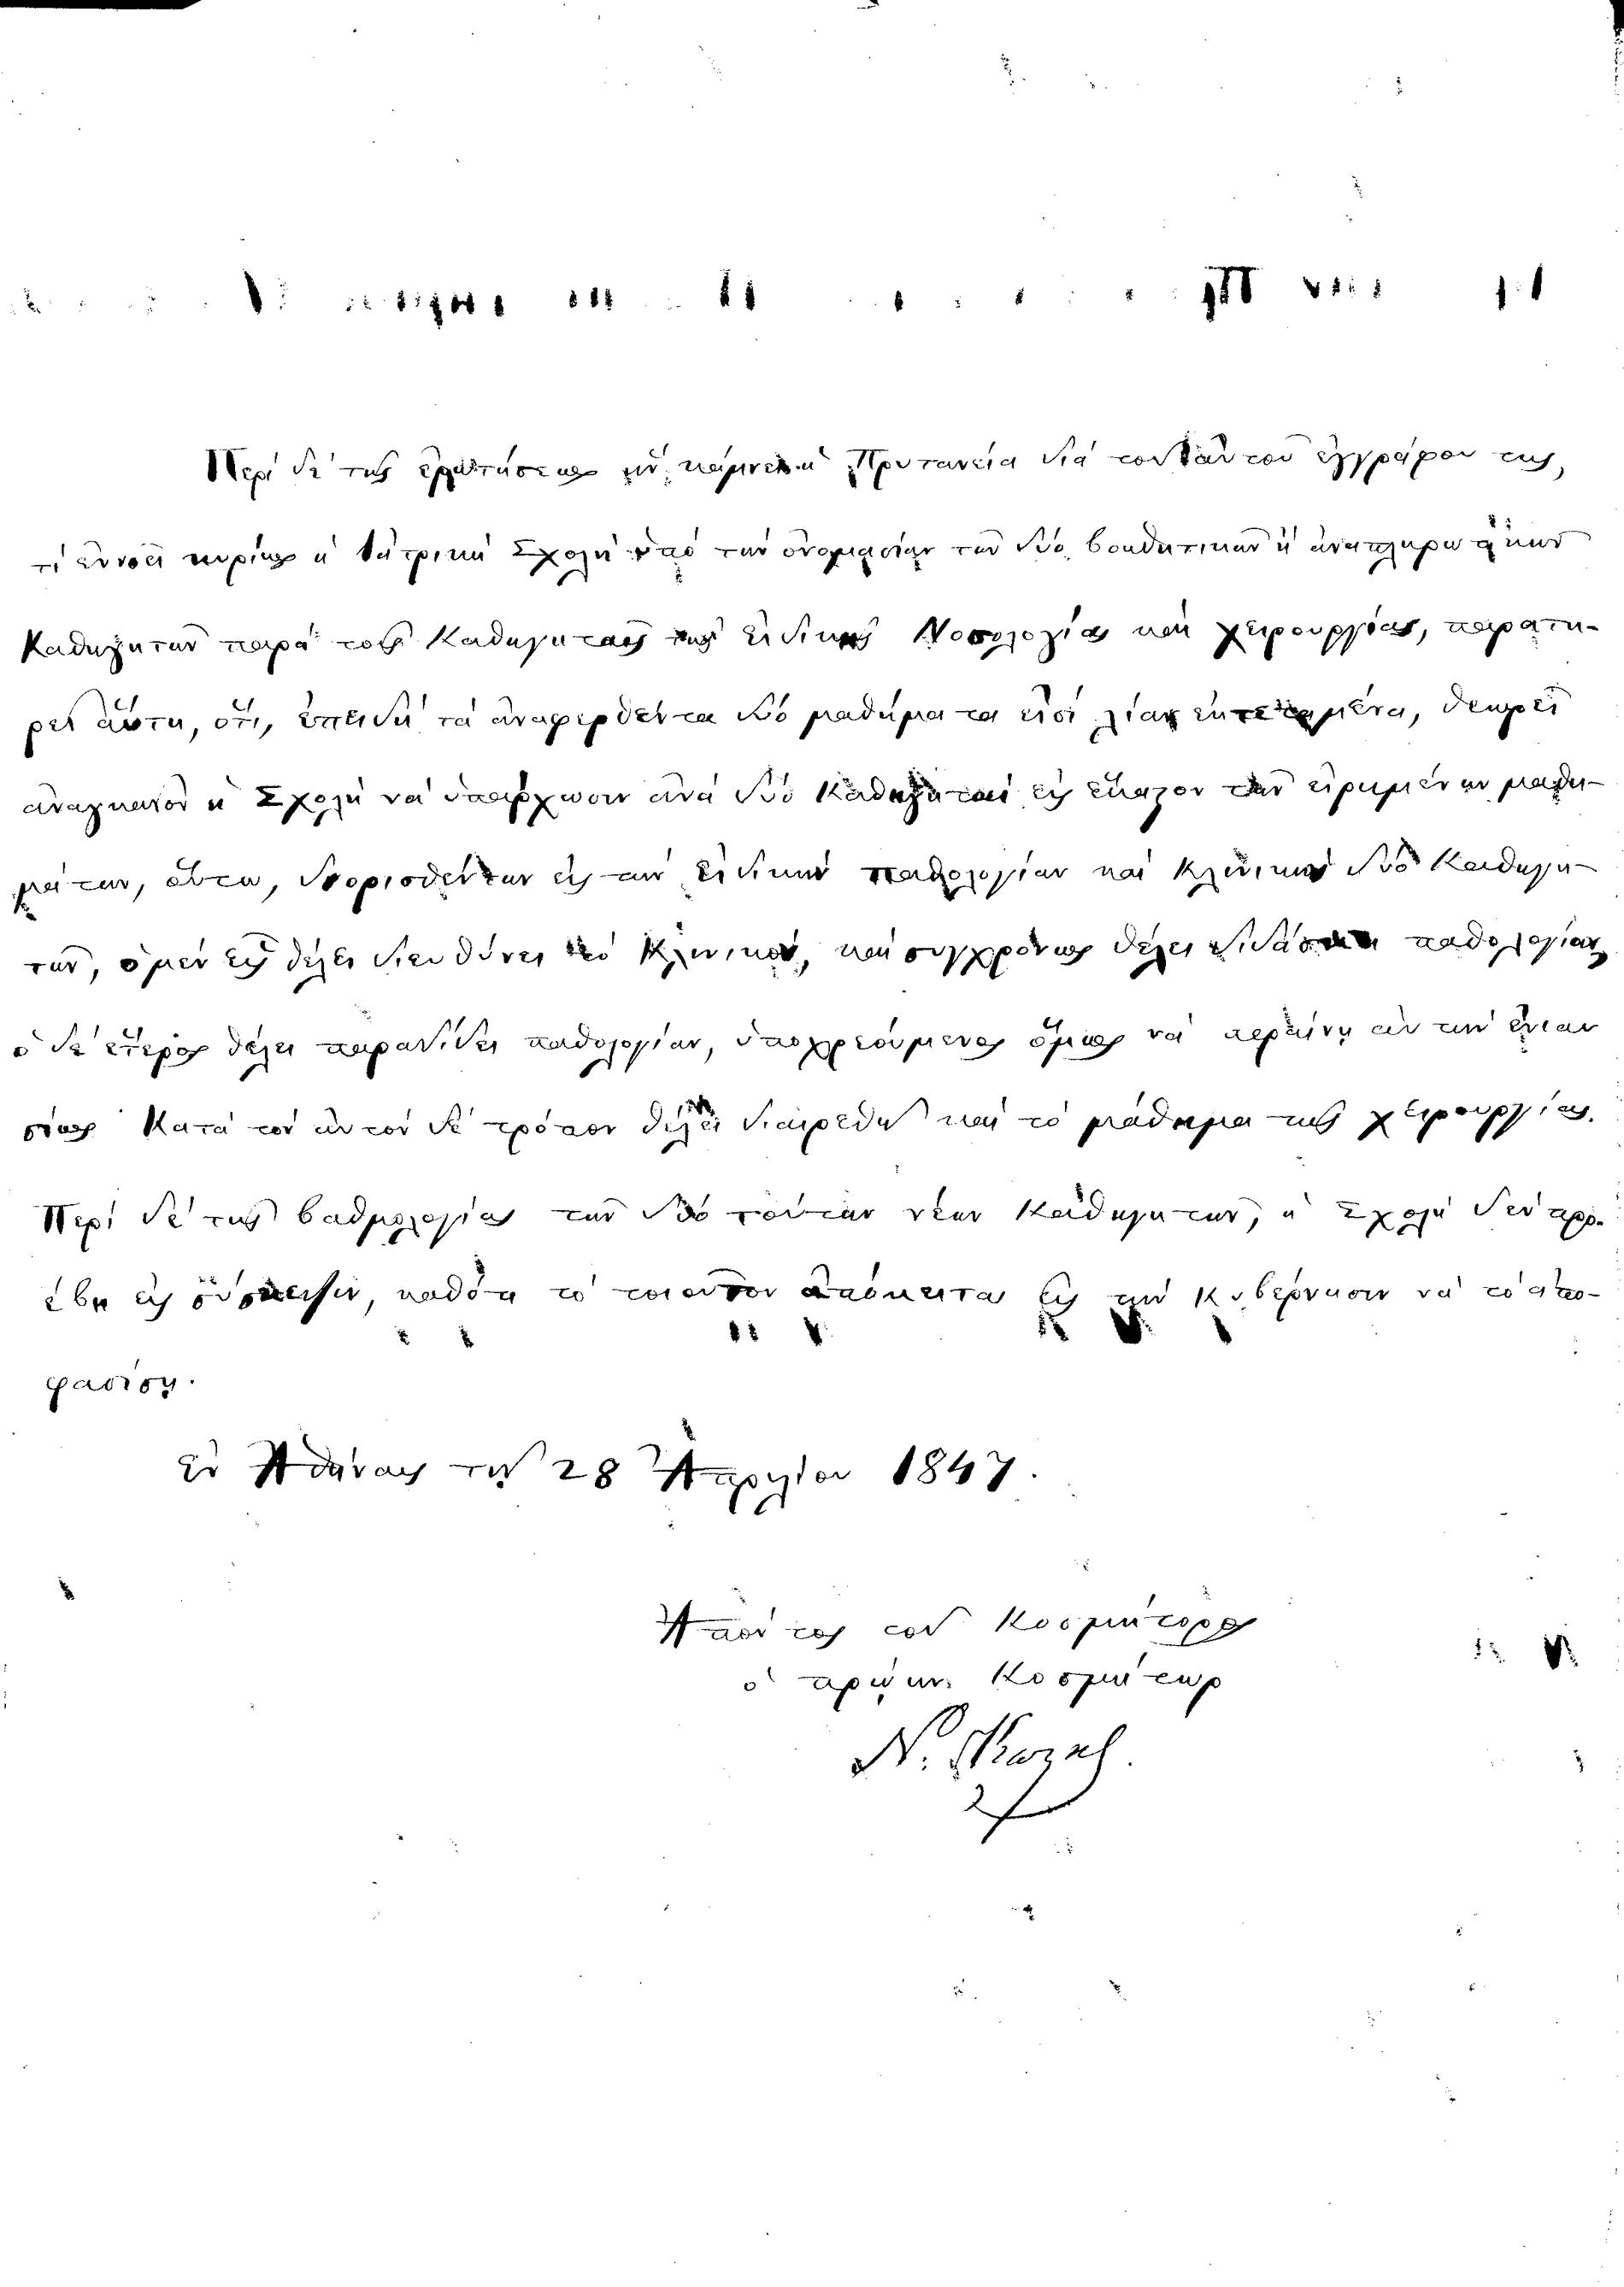 Περὶ δὲ τῆς ἐρωτήσεως ἣν κάμνει ἡ Πρυτανεία διὰ τοῦ ἐγγράφου της,
τί ἐννοεῖ κυρίως ἡ Ἰατρικὴ Σχολὴ ὑπὸ τὴν ὀνομασίαν τῶν δύο βοηθητικῶν ἢ ἀναπληρωτικῶν
Καθηγητῶν παρὰ τοῖς Καθηγηταῖς τῆς εἰδικῆς Νοσολογίας καὶ χειρουργίας, παρατη-
ρεῖ αὕτη, ὅτι, ἐπειδὴ τὰ ἀναφερθέντα δύο μαθήματα εἰσὶ λίαν ἐκτεταμένα, θεωρεῖ
ἀναγκαῖον ἡ Σχολὴ νὰ ὑπάρχωσιν ἀνὰ δύο Καθηγηταὶ εἰς ἕκαστον τῶν εἰρημένων μαθη-
μάτων, οὕτω, διορισθέντων εἰς τὴν εἰδικὴν παθολογίαν καὶ Κλινικὴν δύο Καθηγη-
τῶν, ὁ μὲν εἷς θέλει διευθύνει τὸ Κλινικὸν, καὶ συγχρόνως θέλει διδάσκει παθολογίαν
ὁ δὲ ἕτερος θέλει παραδίδει παθολογίαν, ὑποχρεούμενος ὅμως νὰ περαίνῃ αὐτὴν ἐνιαυ
σίως Κατὰ τὸν αὐτὸν δὲ τρόπον θέλει διαιρεθῆ καὶ τὸ μάθημα τῆς χειρουργίας.
Περὶ δὲ τῆς βαθμολογίας τῶν δύο τούτων νέων Καθηγητῶν, ἡ Σχολὴ δὲν προ-
έβη εἰς σύσκεψιν, καθότι τὸ τοιοῦτον ἀπόκειται εἰς τὴν Κυβέρνησιν νὰ τὸ ἀπο-
φασίσῃ.
Ἐν Ἀθήναις τῇ 28 Ἀπριλίου 1847.
Ἀπόντος τοῦ Κοσμήτορος
ὁ πρώην Κοσμήτωρ
Ν.